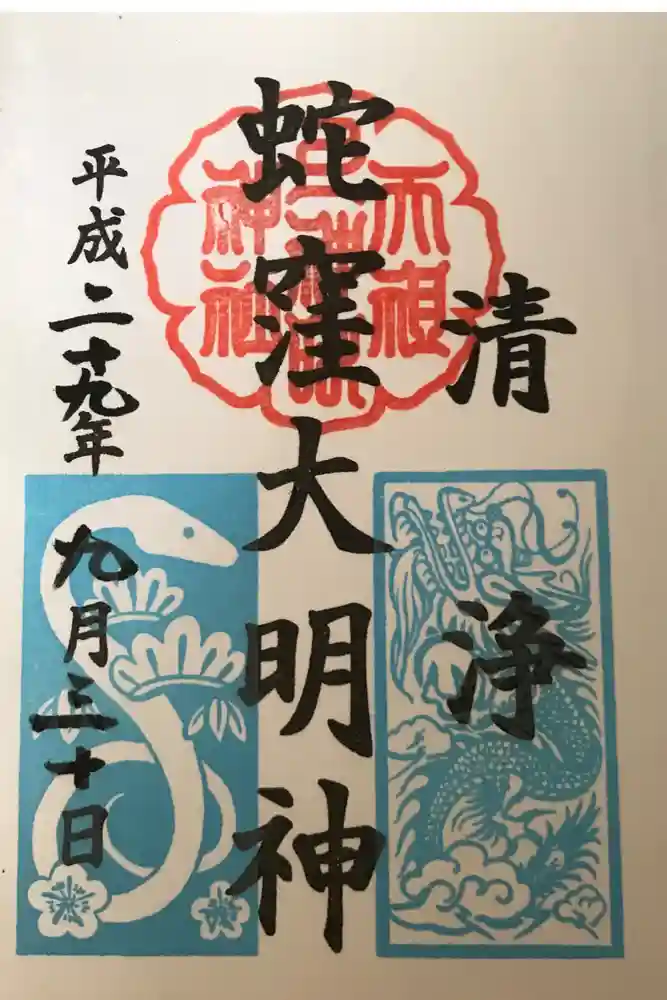 清浄
蛇窪大明神
平成二十九年九月三十日
天祖
神社